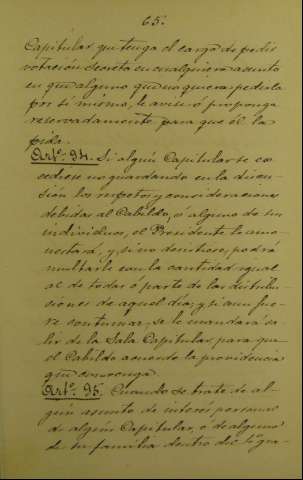 65.
Capitular que tenga el cargo de pedir
votación secreta en cualquiera asunto
en que alguno que no quiera pedirla
por sí mismo, le avise ó proponga
reservadamente para que él la
pida.
Artº. 94. Si algún Capitular se ex-
cediese no guardando en la discu-
sión los respetos y consideraciones
debidas al Cabildo, ó alguno de sus
individuos, el Presidente lo amo-
nestará; y, si no desistiese, podrá
multarle con la cantidad igual
al de todas ó parte de las distribu-
ciones de aquel día; y si aun fue-
re contumaz, se le mandará sa-
lir de la Sala Capitular, para que
el Cabildo acuerde la providencia
que convenga.
Artº. 95. Cuando se trate de al-
gún asunto de interés personal
de algún Capitular, ó de alguno
de su familia dentro del 4º gra-